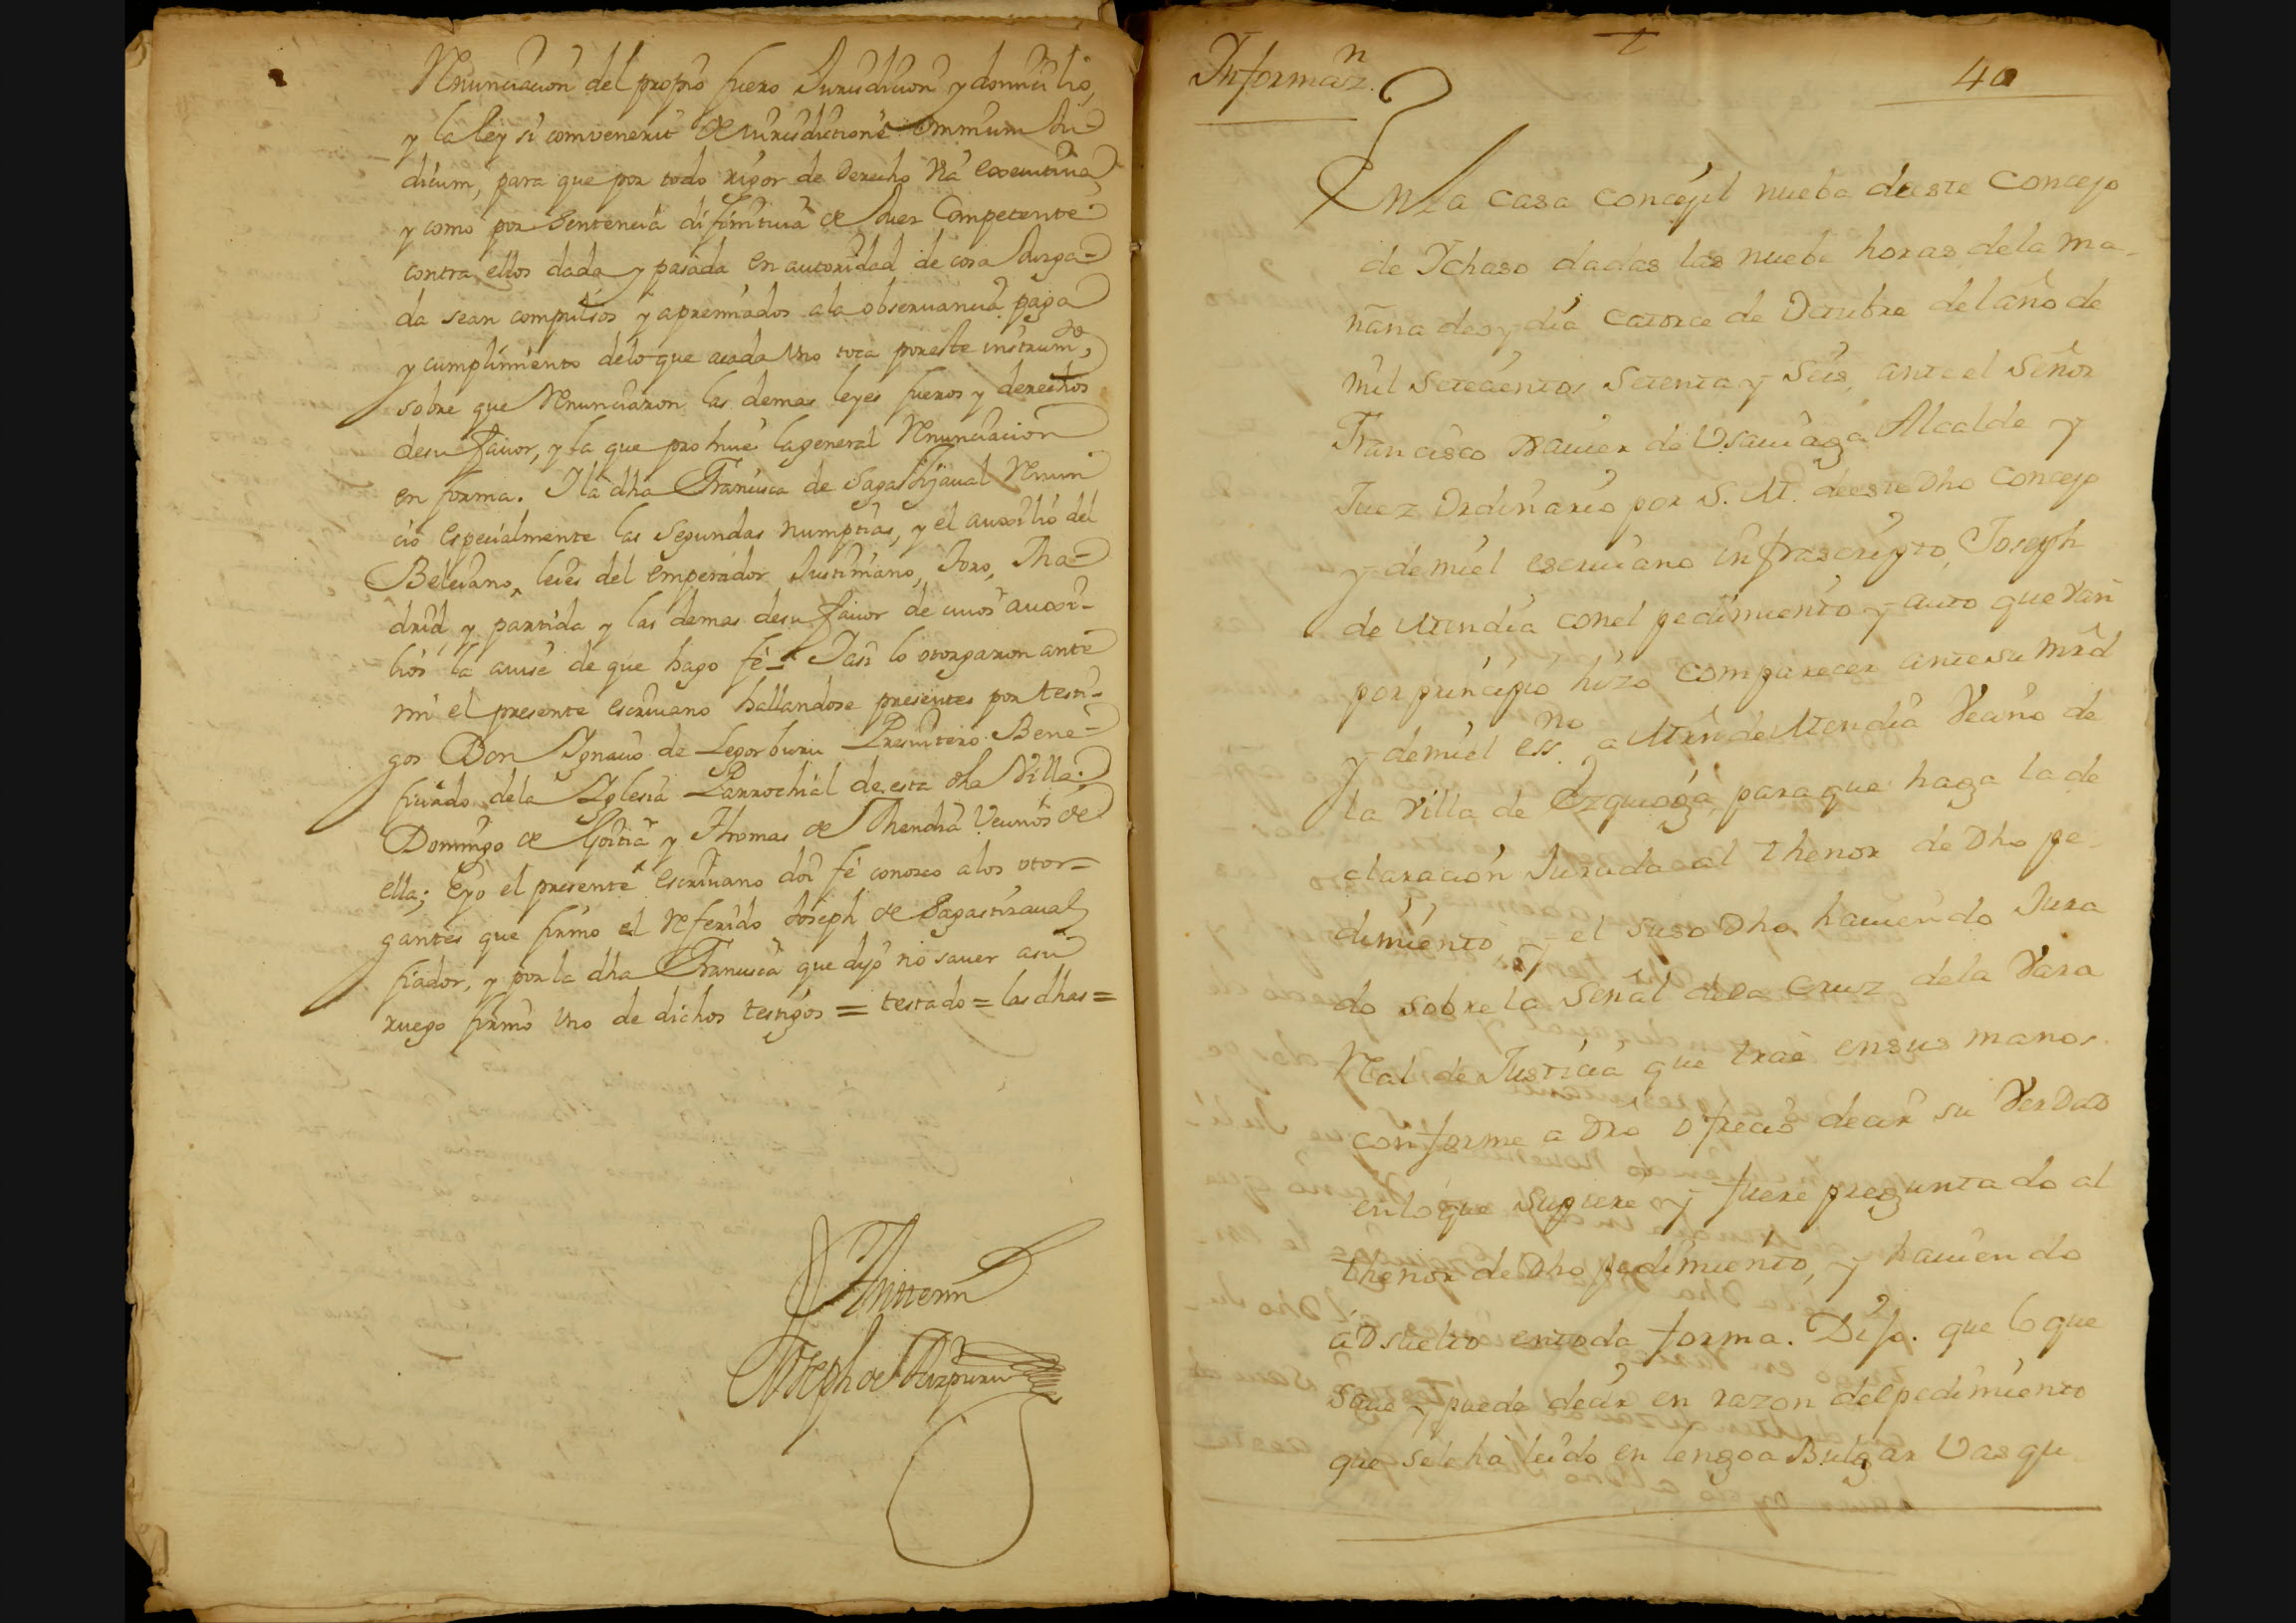 Renunciacion del propio fuero Jurisdicion y domicilio,
y la ley si convenerit de jurisdictione omnium Ju-
dicum, para que por todo rigor de derecho via executiva
y como por Sentencia difinitiva de Juez Competente
contra ellos dada y pasada en autoridad de cosa Juzga-
da sean compulsos y apremiados ala observancia paga
y cumplimiento delo que acada Uno toca poreste instrumto,
sobre que Renunciaron las demas leyes fueros y derechos
desu favor, y la que prohive lageneral Renunciacion
en forma. I la dha Francisca de Sagastizaval Renun
cio especialmente las Segundas numptias, y el auxilio del
Beleiano, leies del emperador Justiniano, Toro, Ma-
drid y partida y las demas desu favor de cuios auxi-
lios la avise de que hago fe - I asi lo otorgaron ante
mi el presente escrivano hallandose presentes por testi-
gos Don Ignacio de Legorburu Presvitero Bene-
ficiado dela Iglesia Parrochial de esta dha Villa,
Domingo de Goitia y Thomas de Mendia Vecinos de
ella; Eyo el presente escrivano doi fe conozco alos otor=
gantes que firmo el Referido Joseph de Sagastizaval
fiador, y por la dha Francisca que dijo no saver asu
ruego firmo Uno de dichos testigos = testado = las dhas =
Antemi
Joseph de Aizpuru
Informazn.
40
En La casa concejil nueba deeste concejo
de Ichaso dadas las nuebe horas dela ma-
ñana deoy dia catorce de Octubre del año de
mil setecientos setenta y seis, ante el señor
Francisco Xavier de Usaviaga Alcalde y
Juez Ordinario por S. M. deeste Dho concejo
y demi el escrivano infrascripto, Joseph
de Mendia conel pedimiento y auto que van
por principio hizo comparecer ante su mrd
y demi el essno. a Mrn de Mendia Vecino de
la villa de Ezquioga, para que haga la de
claracion Jurada al thenor de Dho pe-
dimiento, y el suso Dho haviendo Jura
do sobre la señal dela cruz dela Vara
Real de Justicia que trae ensus manos
conforme a Dro ofrecio decir su Verdad
enloque supiere y fuere preguntado al
thenor de Dho pedimiento, y haviendo
absuelto entoda forma. Dijo. que lo que
save y puede decir en razon del pedimiento
que sele ha leido en lengoa Bulgar Vasqu